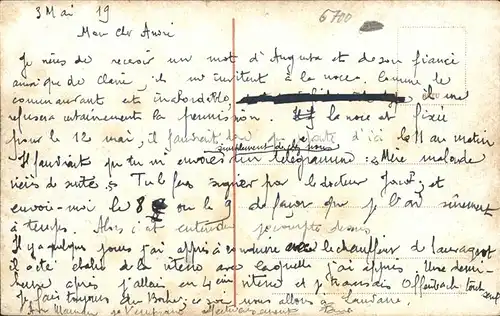 3 Mai 19
6700
Mon cher André
Je viens de recevoir un mot d'Augusta et de son fiancé
ainsi que de Claire, ils m'invitent à la noce. Comme le
commandant est inabordable, il me
refusera certainement la permission. la noce est fixée
pour le 12 mai, il faudrait donc que je parte d'ici le 11 au matin
simplement de chez nous
Il faudrait que tu m'envoies un télégramme : Mère malade
viens de suite. Tu le feras signer par le docteur et
envoie-moi le 8 ou le 9 de façon que je l'ai sûrement
à temps. Alors c'est entendu je compte dessus
Il y a quelques jours j'ai appris à conduire avec le chauffeur de
il a été de la vitesse avec laquelle j'ai appris. Une demi-
heure après j'allais en 4eme vitesse et je Offenbach tout seul
Je fais toujours du Boche, ce soir nous allons à Landau